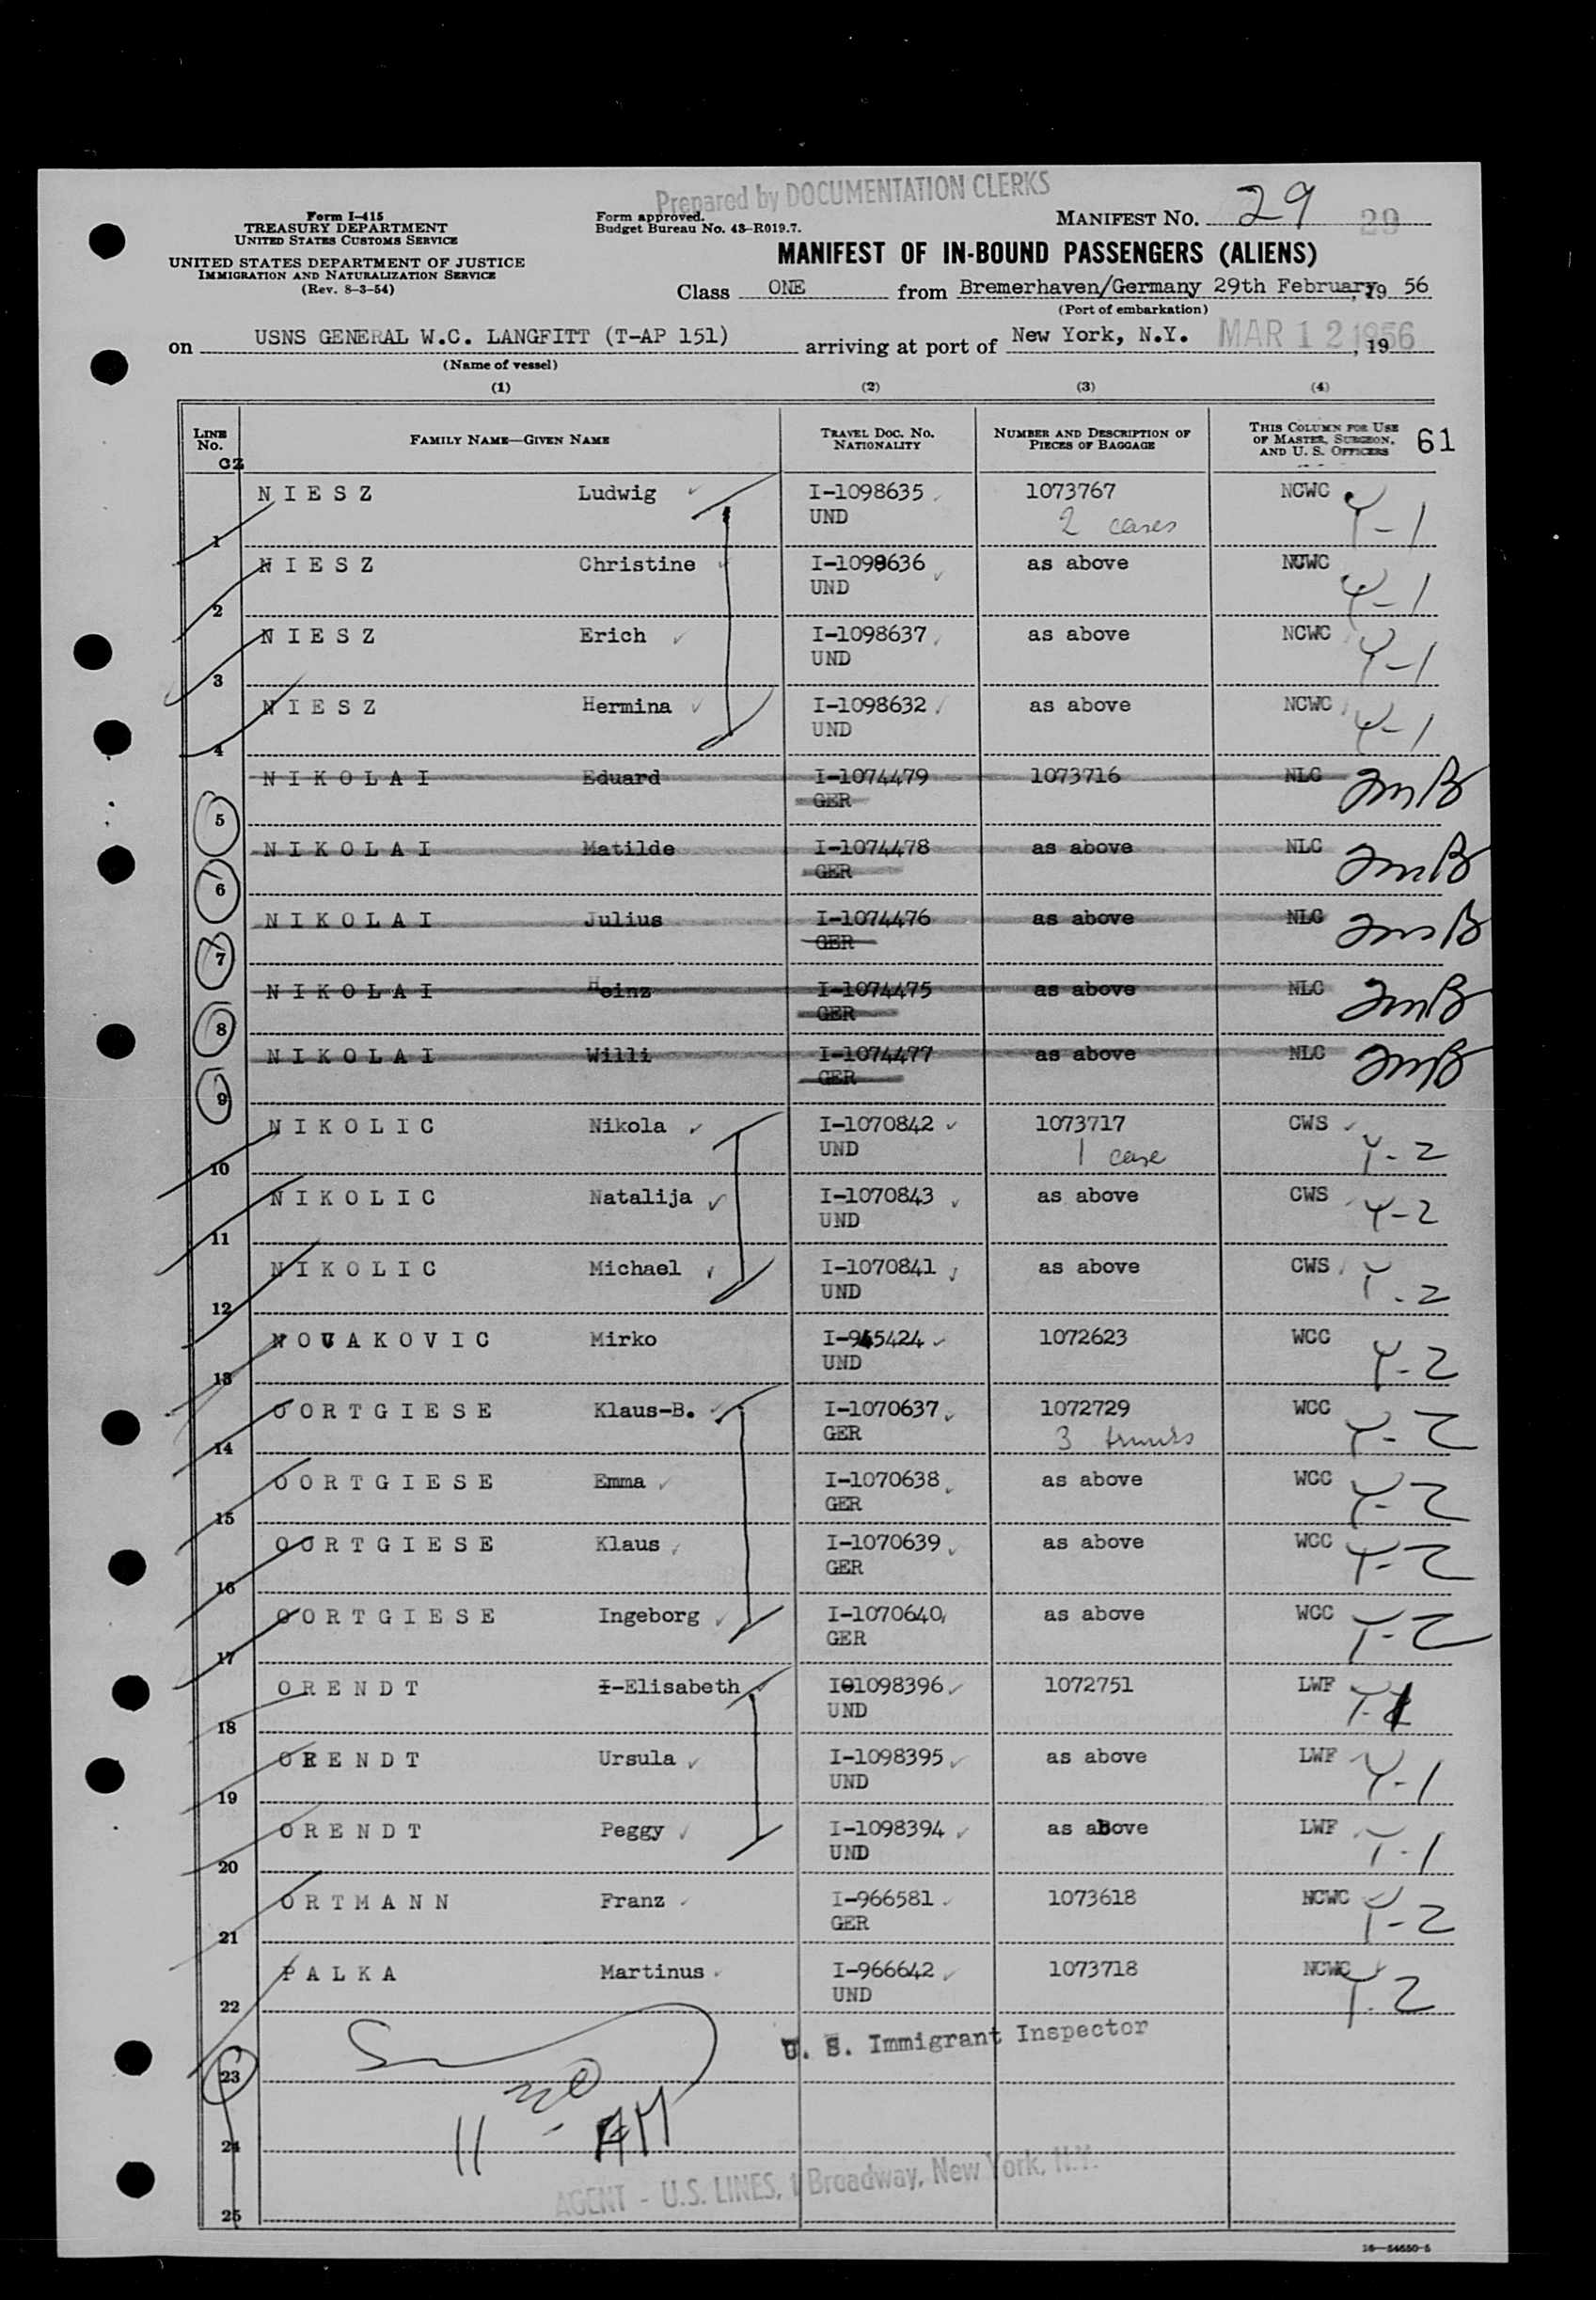 Prepared by DOCUMENTATION CLERKS
Form I-415
TREASURY DEPARTMENT
UNITED STATES CUSTOMS SERVICE
UNITED STATES DEPARTMENT OF JUSTICE
IMMIGRATION AND NATURALIZATION SERVICE
(Rev. 8-3-54)
Form approved.
Budget Bureau No. 43-R019.7.
MANIFEST NO. 29 29
MANIFEST OF IN-BOUND PASSENGERS (ALIENS)
Class ONE from Bremerhaven/Germany 29th February, 19 56
(Port of embarkation)
on USNS GENERAL W.C. LANGFITT (T-AP 151) arriving at port of New York, N.Y. MAR 12 1956, 19
(Name of vessel)
(1) (2) (3) (4)
LINE No. FAMILY NAME—GIVEN NAME TRAVEL DOC. NO. NATIONALITY NUMBER AND DESCRIPTION OF PIECES OF BAGGAGE THIS COLUMN FOR USE OF MASTER, SURGEON, AND U. S. OFFICERS 61
GZ
NIESZ Ludwig I-1098635 1073767 NCWC Y-1
1 UND 2 cases
NIESZ Christine I-1098636 as above NCWC Y-1
2 UND
NIESZ Erich I-1098637 as above NCWC Y-1
3 UND
NIESZ Hermina I-1098632 as above NCWC Y-1
4 UND
NIKOLAI Eduard I-1074479 1073716 NLC
5 GER
NIKOLAI Matilde I-1074478 as above NLC
6 GER
NIKOLAI Julius I-1074476 as above NLC
7 GER
NIKOLAI Heinz I-1074475 as above NLC
8 GER
NIKOLAI Willi I-1074477 as above NLC
9 GER
NIKOLIC Nikola I-1070842 1073717 CWS Y-2
10 UND 1 case
NIKOLIC Natalija I-1070843 as above CWS Y-2
11 UND
NIKOLIC Michael I-1070841 as above CWS Y-2
12 UND
NOVAKOVIC Mirko 1072623 WCC Y-2
13 UND
OORTGIESE Klaus-B. I-1070637 1072729 WCC Y-2
14 GER 3 trunks
OORTGIESE Emma I-1070638 as above WCC Y-2
15 GER
OORTGIESE Klaus I-1070639 as above WCC Y-2
16 GER
OORTGIESE Ingeborg I-1070640 as above WCC Y-2
17 GER
ORENDT I-Elisabeth I01098396 1072751 LWF
18 UND
ORENDT Ursula I-1098395 as above LWF Y-1
19 UND
ORENDT Peggy I-1098394 as above LWF Y-1
20 UND
ORTMANN Franz I-966581 1073618 NCWC Y-2
21 GER
PALKA Martinus I-966642 1073718 NCWC Y-2
22 UND
U. S. Immigrant Inspector
23
11 30 AM
24
AGENT - U.S. LINES, 1 Broadway, New York, N.Y.
25
16—54650-5